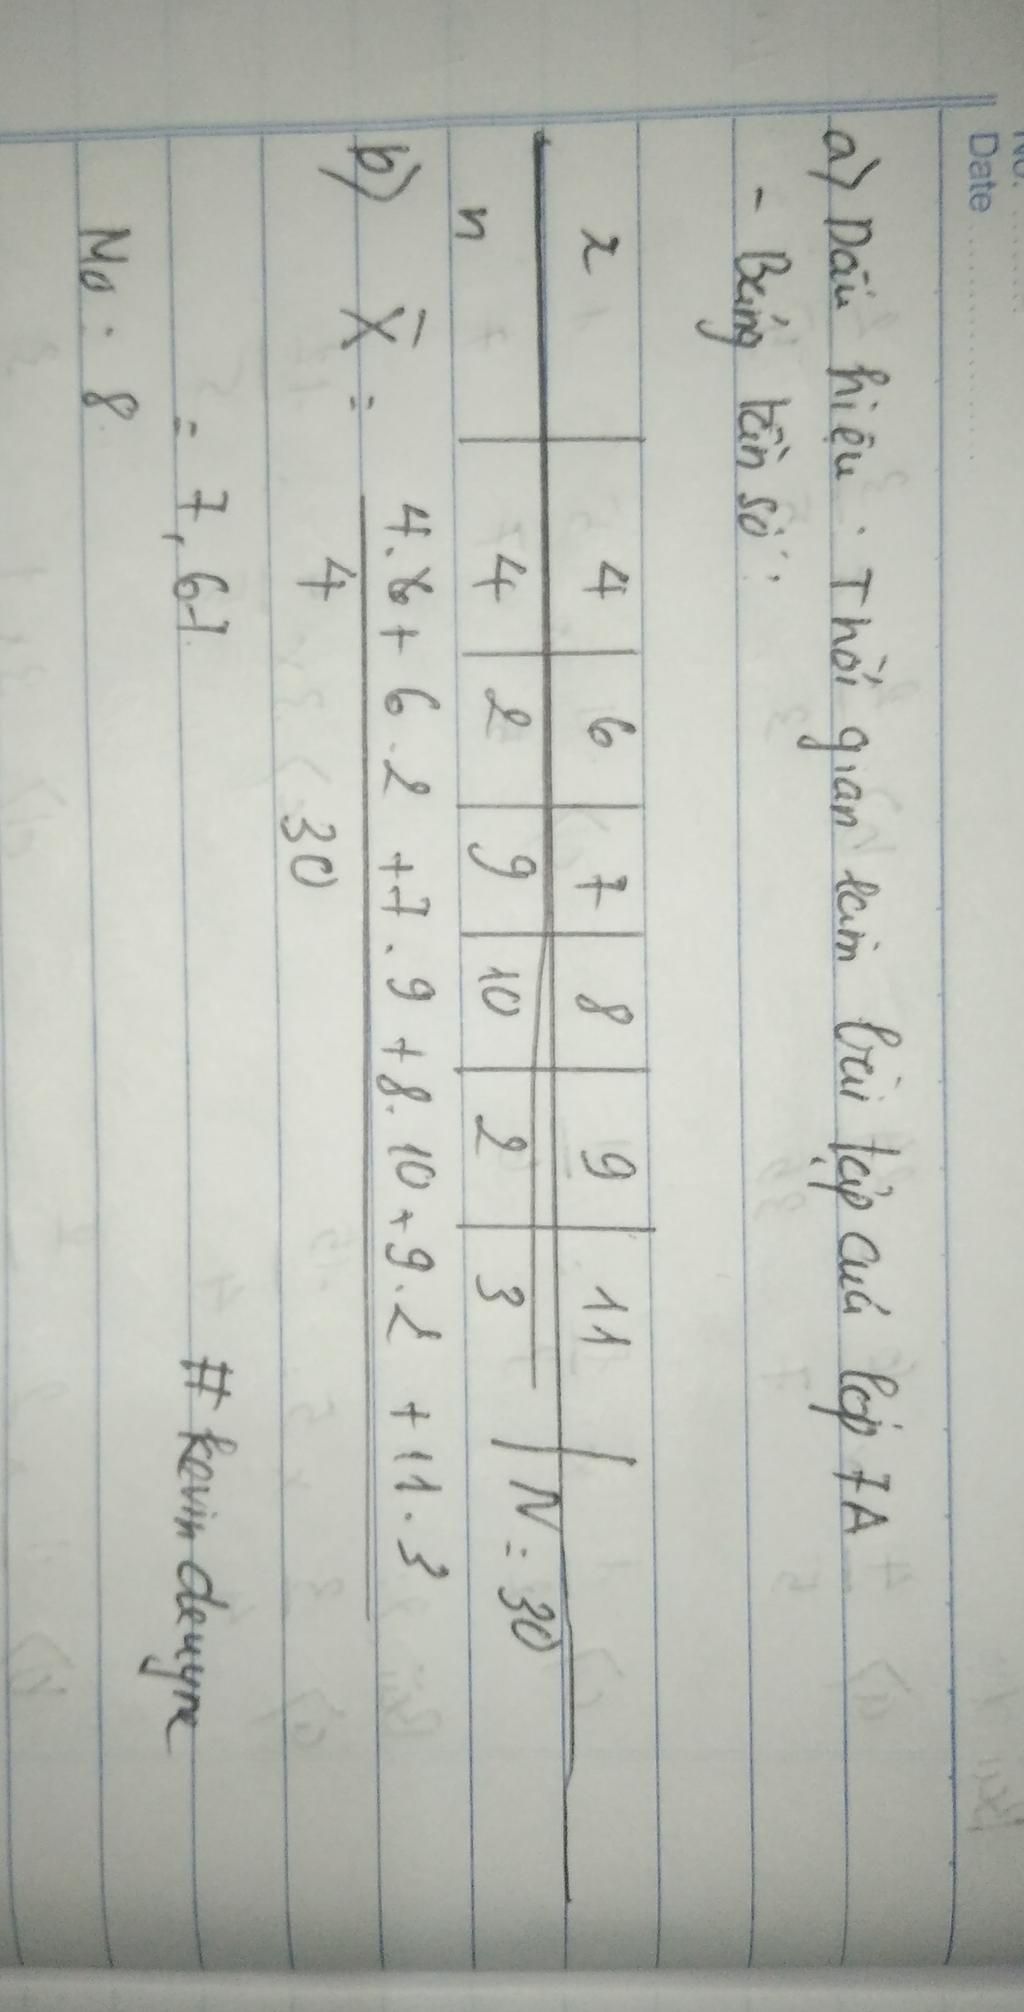 No. ........
Date ....................
a) Dấu hiệu : Thời gian làm bài tập của lớp 7A
- Bảng tần số :
x 4 6 7 8 9 11
n 4 2 9 10 2 3 N = 30
b) X̄ = 4.4 + 6.2 + 7.9 + 8.10 + 9.2 + 11.3
4 30
= 7,67
# kevin denyne
Mo : 8